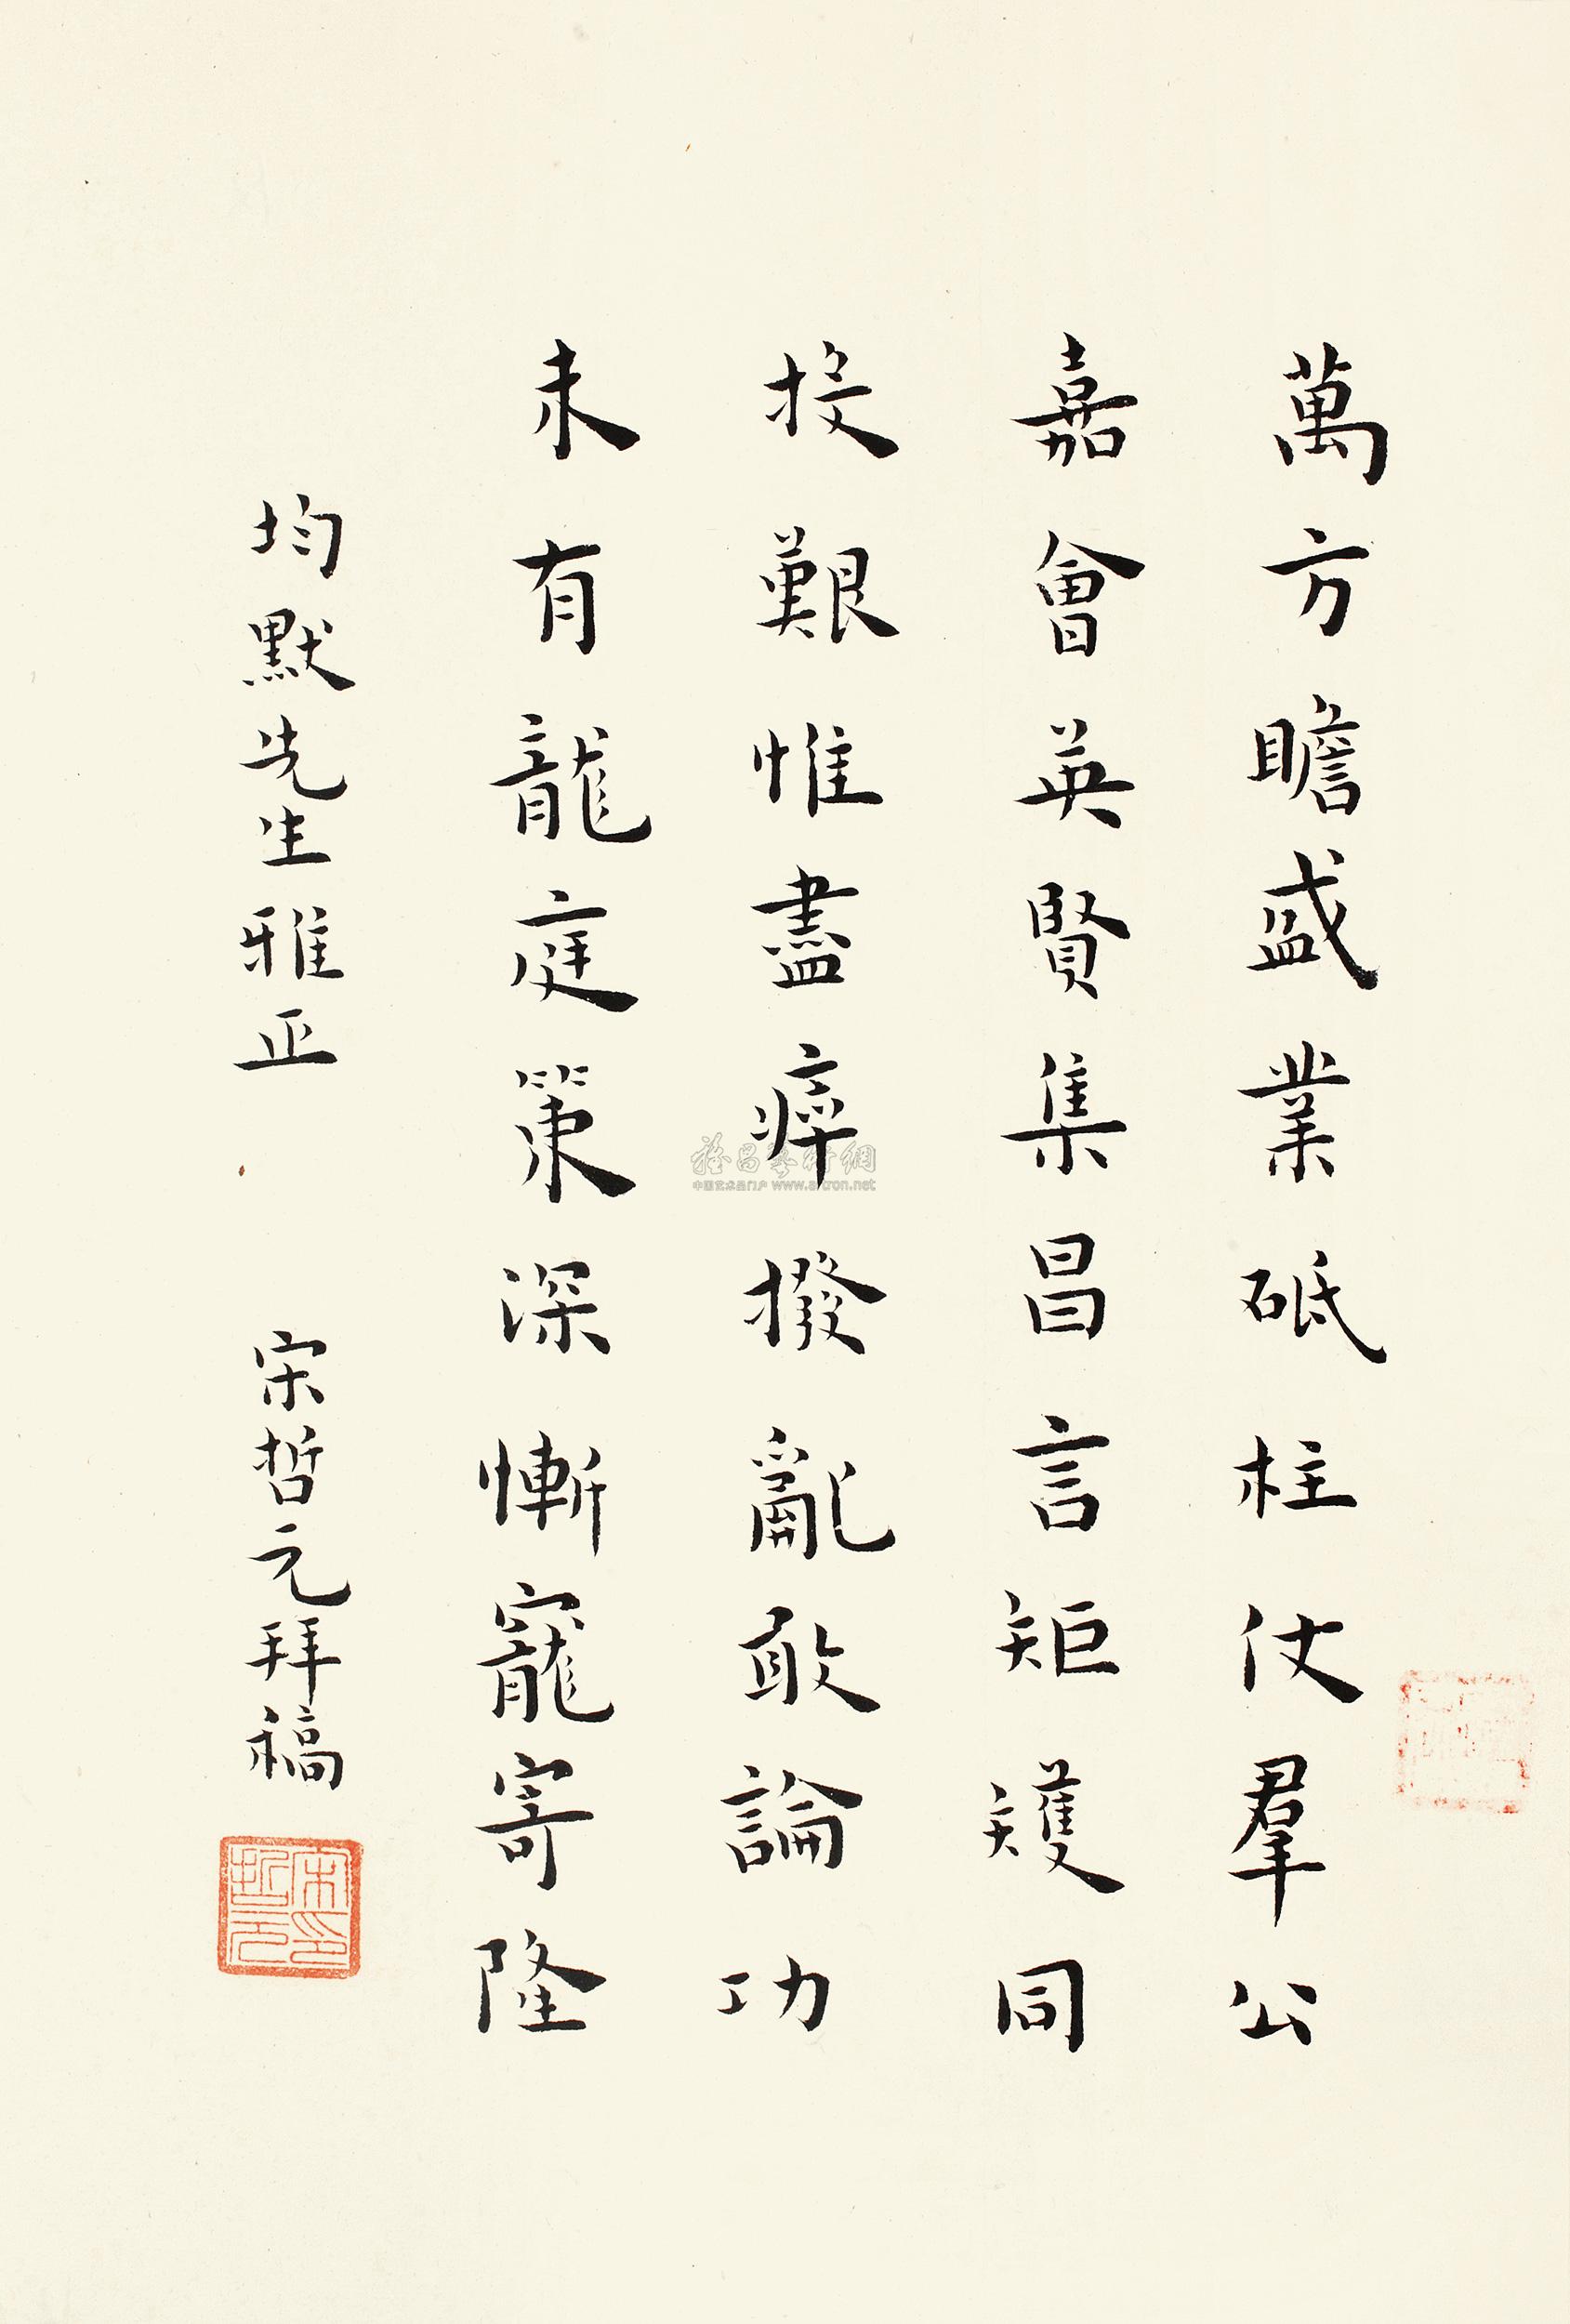 萬方瞻盛業砥柱仗羣公
嘉會英賢集昌言矩矱同
投艱惟盡瘁撥亂敢論功
未有龍庭策深慚寵寄隆
均默先生雅正 宋哲元拜稿
宋哲元印
雅昌藝術網
中国艺术品门户 www.artron.net